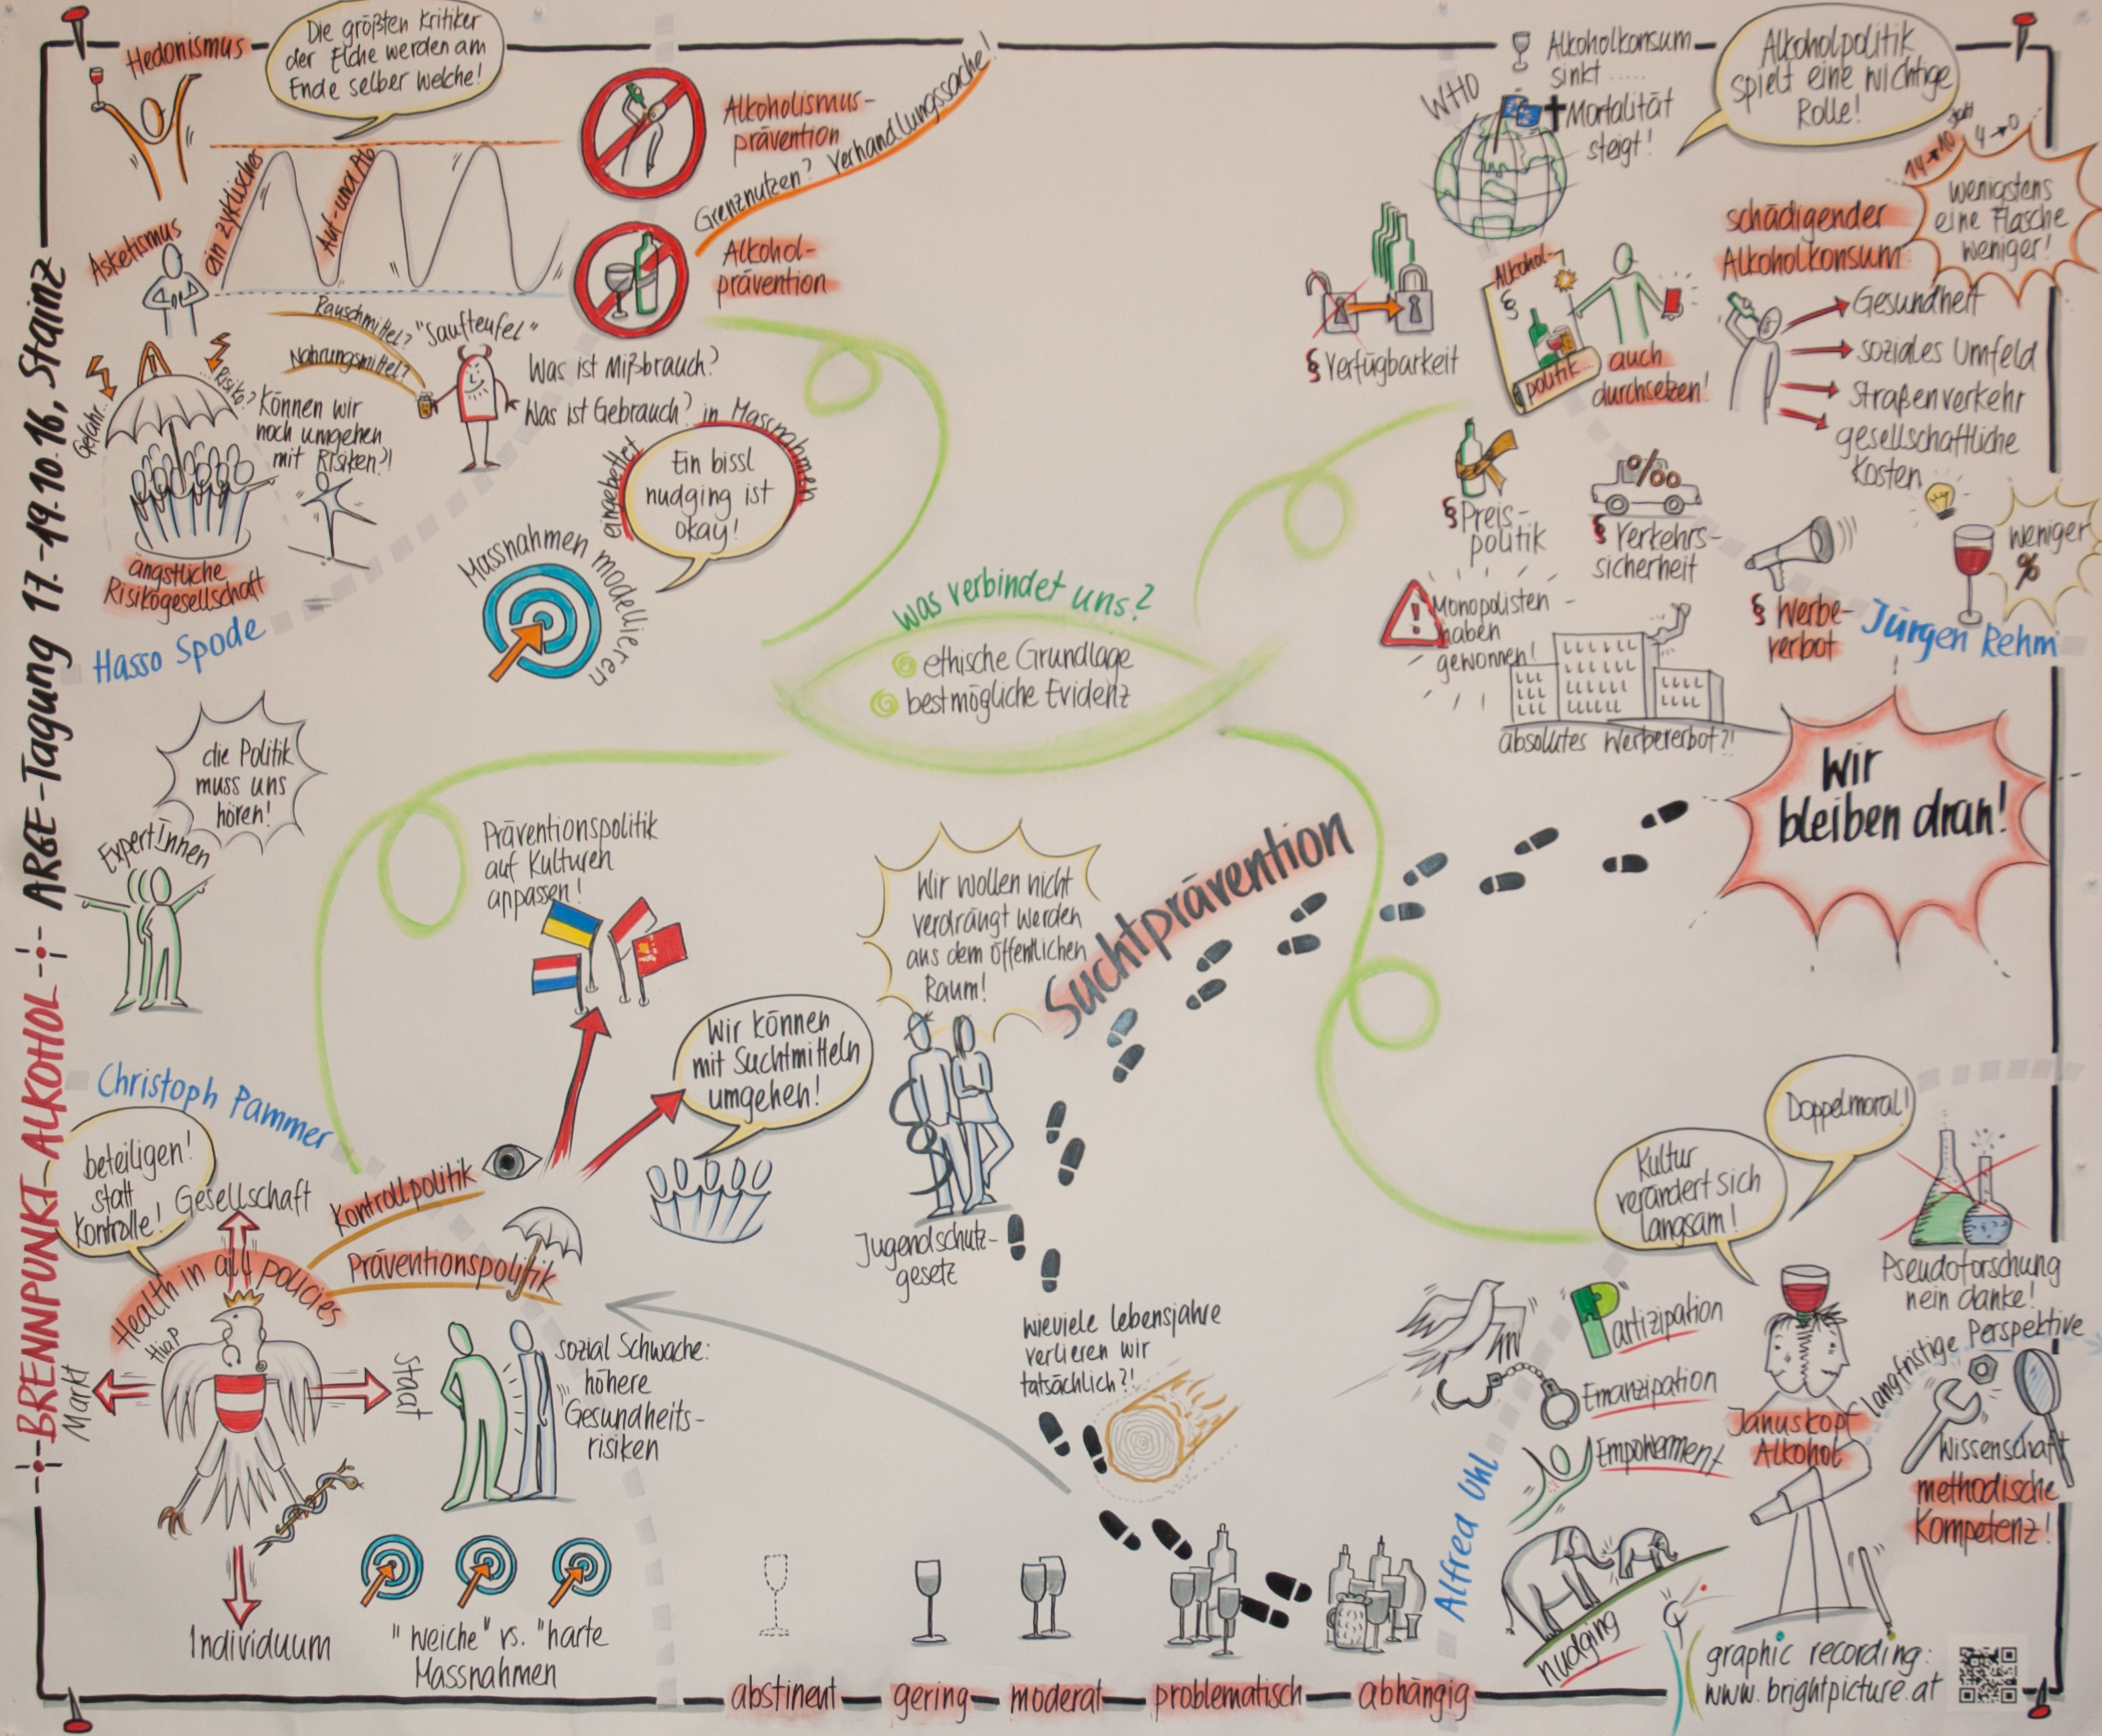 BRENNPUNKT ALKOHOL
ARGE-Tagung 17.-19.10.16, Stainz
Hedonismus
Die größten Kritiker
der Elche werden am
Ende selber welche!
Asketismus
ein zyklisches
Auf-und Ab
Alkoholismus-
prävention
Grenznutzen? Verhandlungssache!
Alkohol-
prävention
Rauschmittel?
Nahrungsmittel?
"Saufteufel"
Was ist Mißbrauch?
Was ist Gebrauch?
Gefahr..
..Risiko?
Können wir
noch umgehen
mit Risiken?!
ängstliche
Risikogesellschaft
Hasso Spode
eingebettet
in Massnahmen
Ein bissl
nudging ist
okay!
Massnahmen modellieren
WHO
Alkoholkonsum
sinkt .....
Mortalität
steigt!
Alkoholpolitik
spielt eine wichtige
Rolle!
14→10
statt
4→0
wenigstens
eine Flasche
weniger!
schädigender
Alkoholkonsum
Gesundheit
soziales Umfeld
Straßenverkehr
gesellschaftliche
Kosten
§ Verfügbarkeit
Alkohol-
§
politik...
auch
durchsetzen!
§ Preis-
politik
%
§ Verkehrs-
sicherheit
§ Werbe-
verbot
weniger
%
Jürgen Rehm
!
Monopolisten
haben
gewonnen!
absolutes Werbeverbot?!
was verbindet uns?
ethische Grundlage
bestmögliche Evidenz
Wir
bleiben dran!
die Politik
muss uns
hören!
ExpertInnen
Präventionspolitik
auf Kulturen
anpassen!
Wir können
mit Suchtmitteln
umgehen!
Christoph Pammer
beteiligen!
statt
Kontrolle!
Gesellschaft
Kontrollpolitik
Präventionspolitik
Health in all policies
HiaP
Markt
Staat
Individuum
sozial Schwache:
höhere
Gesundheits-
risiken
"weiche" vs. "harte
Massnahmen
Wir wollen nicht
verdrängt werden
aus dem öffentlichen
Raum!
Suchtprävention
Jugendschutz-
gesetz
wieviele Lebensjahre
verlieren wir
tatsächlich?!
abstinent
gering
moderat
problematisch
abhängig
Doppelmoral!
Kultur
verändert sich
langsam!
Pseudoforschung
nein danke!
Langfristige Perspektive
Partizipation
Emanzipation
Empowerment
Januskopf
Alkohol
Wissenschaft
methodische
Kompetenz!
Alfred Uhl
nudging
graphic recording:
www.brightpicture.at